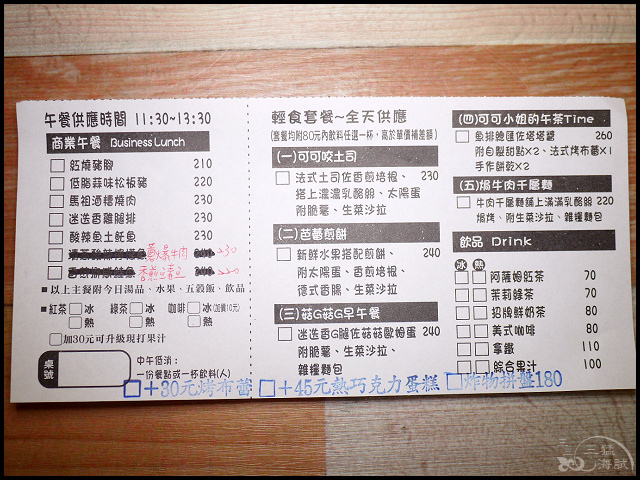 午餐供應時間 11:30~13:30
商業午餐 Business Lunch
紅燒豬腳 210
低脂蒜味松板豬 220
馬祖酒糟燒肉 230
迷迭香雞腿排 230
酸辣魚土魠魚 230
蔥爆牛肉 230
220
■以上主餐附今日湯品、水果、五穀飯、飲品
紅茶 冰 綠茶 冰 咖啡 冰(加價10元)
熱 熱 熱
加30元可升級現打果汁
桌號
中午低消：
一份餐點或一杯飲料(人)
輕食套餐~全天供應
(套餐均附80元內飲料任選一杯，高於單價補差額)
(一)可可咬土司
法式土司佐香煎培根、 230
搭上濃濃乳酪餡、太陽蛋
附脆薯、生菜沙拉
(二)芭蕾煎餅
新鮮水果搭配煎餅、 240
附太陽蛋、香煎培根、
德式香腸、生菜沙拉
(三)菇G菇G早午餐
迷迭香G腿佐菇菇歐姆蛋 240
附脆薯、生菜沙拉、
雜糧麵包
(四)可可小姐的午茶Time
魚排雞匯佐塔塔醬 260
附自製甜點×2、法式烤布蕾×1
手作餅乾×2
(五)焗牛肉千層麵
牛肉千層麵鋪上滿滿乳酪餡 220
焗烤、附生菜沙拉、雜糧麵包
飲品 Drink
冰 熱
阿薩姆紅茶 70
茉莉綠茶 70
招牌鮮奶茶 80
美式咖啡 80
拿鐵 110
綜合果汁 100
□+30元烤布蕾 □+45元熱巧克力蛋糕 □炸物拼盤180
三猛
海試